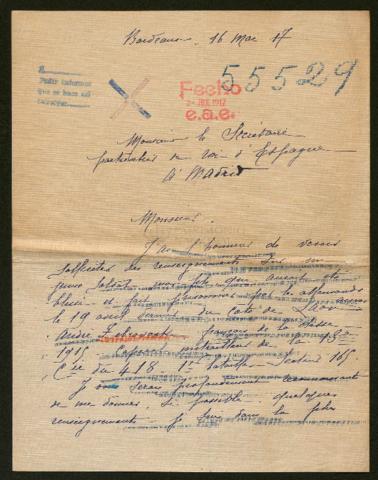 Bordeaux, 16 Mai 17
55529
Pedir informes
que se hace así
Fecho
2-JUL 1917
e.a.e.
Monsieur le Secrétaire
particulier du roi d'Espagne
à Madrid
Monsieur,
J'ai l'honneur de venir
solliciter des renseignements sur un
jeune soldat qui aurait été
blessé et fait prisonnier par les allemands
le 19 avril du côté de Laon
André de la classe
1915 Caporal mitrailleur de la
Cie du 418. 1er Bataillon Secteur 165
Je vous serai profondément reconnaissant
de me donner, si possible, quelques
renseignements. Je suis dans la plus